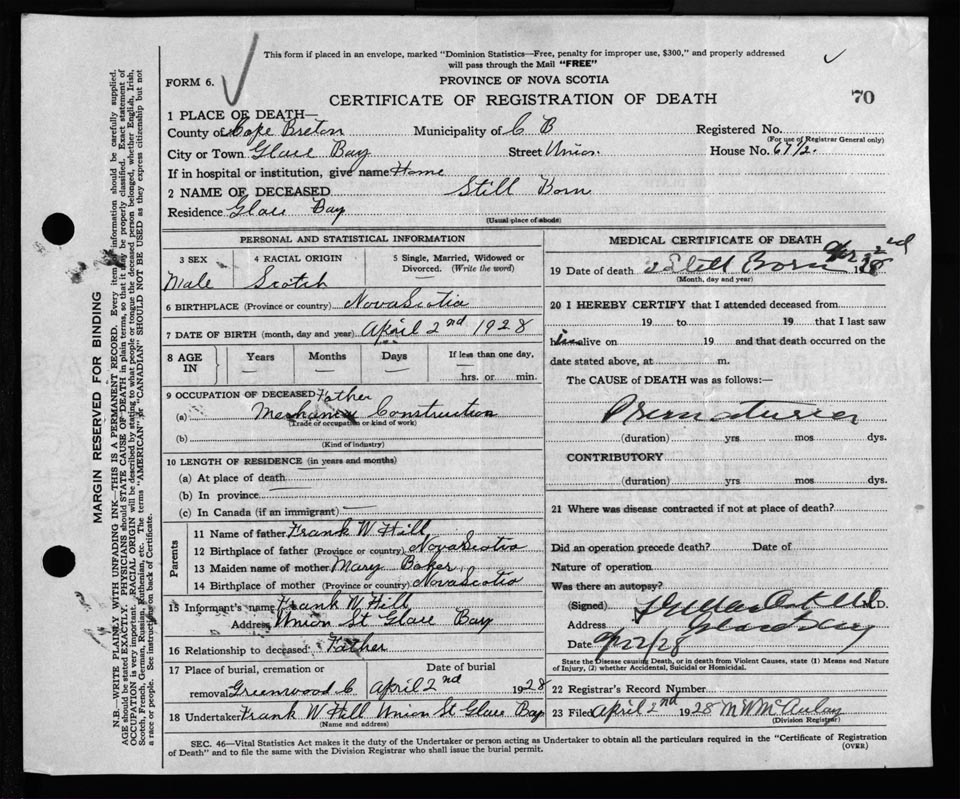 This form if placed in an envelope, marked "Dominion Statistics—Free, penalty for improper use, $300," and properly addressed
will pass through the Mail "FREE"
FORM 6.
PROVINCE OF NOVA SCOTIA
CERTIFICATE OF REGISTRATION OF DEATH
70
1 PLACE OF DEATH—
County of Cape Breton Municipality of C B Registered No.
(For use of Registrar General only)
City or Town Glace Bay Street Union House No. 67 1/2
If in hospital or institution, give name Home
2 NAME OF DECEASED Still Born
Residence Glace Bay
(Usual place of abode)
PERSONAL AND STATISTICAL INFORMATION
3 SEX 4 RACIAL ORIGIN 5 Single, Married, Widowed or Divorced. (Write the word)
Male Scotch
6 BIRTHPLACE (Province or country) Nova Scotia
7 DATE OF BIRTH (month, day and year) April 2nd 1928
8 AGE IN Years Months Days If less than one day,
— — — hrs. or min.
9 OCCUPATION OF DECEASED Father
(a) Mechanic Construction
(Trade or occupation or kind of work)
(b)
(Kind of industry)
10 LENGTH OF RESIDENCE (in years and months)
(a) At place of death
(b) In province
(c) In Canada (if an immigrant) —
Parents
11 Name of father Frank W Hill
12 Birthplace of father (Province or country) Nova Scotia
13 Maiden name of mother Mary Baker
14 Birthplace of mother (Province or country) Nova Scotia
15 Informant's name Frank W Hill
Address Union St Glace Bay
16 Relationship to deceased Father
17 Place of burial, cremation or Date of burial
removal Greenwood C April 2nd 1928
18 Undertaker Frank W Hill Union St Glace Bay
(Name and address)
MEDICAL CERTIFICATE OF DEATH
19 Date of death Still Born Apr 2nd 1928
(Month, day and year)
20 I HEREBY CERTIFY that I attended deceased from
19 to 19 that I last saw
him alive on 19 and that death occurred on the
date stated above, at m.
The CAUSE of DEATH was as follows:—
(duration) yrs. mos dys.
CONTRIBUTORY
(duration) yrs mos dys.
21 Where was disease contracted if not at place of death?
Did an operation precede death? Date of
Nature of operation
Was there an autopsy?
(Signed) M.D.
Address Glace Bay
Date
State the Disease causing Death, or in death from Violent Causes, state (1) Means and Nature
of Injury, (2) whether Accidental, Suicidal or Homicidal.
22 Registrar's Record Number
23 Filed April 2nd 1928 M W McAulay
(Division Registrar)
SEC. 46—Vital Statistics Act makes it the duty of the Undertaker or person acting as Undertaker to obtain all the particulars required in the "Certificate of Registration
of Death" and to file the same with the Division Registrar who shall issue the burial permit. (OVER)
MARGIN RESERVED FOR BINDING
N.B.—WRITE PLAINLY WITH UNFADING INK—THIS IS A PERMANENT RECORD. Every item of information should be carefully supplied.
AGE should be stated EXACTLY. PHYSICIANS should STATE CAUSE OF DEATH in plain terms, so that it may be properly classified. Exact statement of
OCCUPATION is very important. RACIAL ORIGIN will be described by stating to what people or tongue the deceased person belonged, whether English, Irish,
Scotch, French, German, Russian, Ruthenian, etc. The terms "AMERICAN" or "CANADIAN" SHOULD NOT BE USED as they express citizenship but not
a race or people. See instructions on back of Certificate.